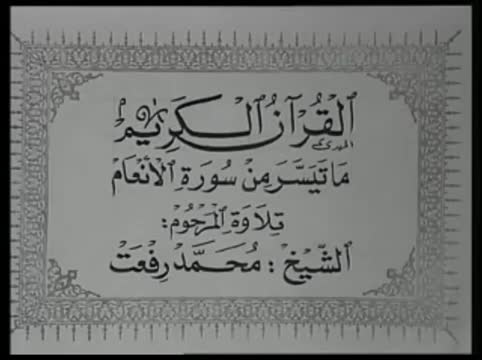 القُرآنُ الكَرِيم
مَا تَيَسَّرَ مِنْ سُورَةِ الأَنعَام
تِلَاوَةِ المَرحُوم:
الشَّيْخ : مُحَمَّد رِفْعَتْ